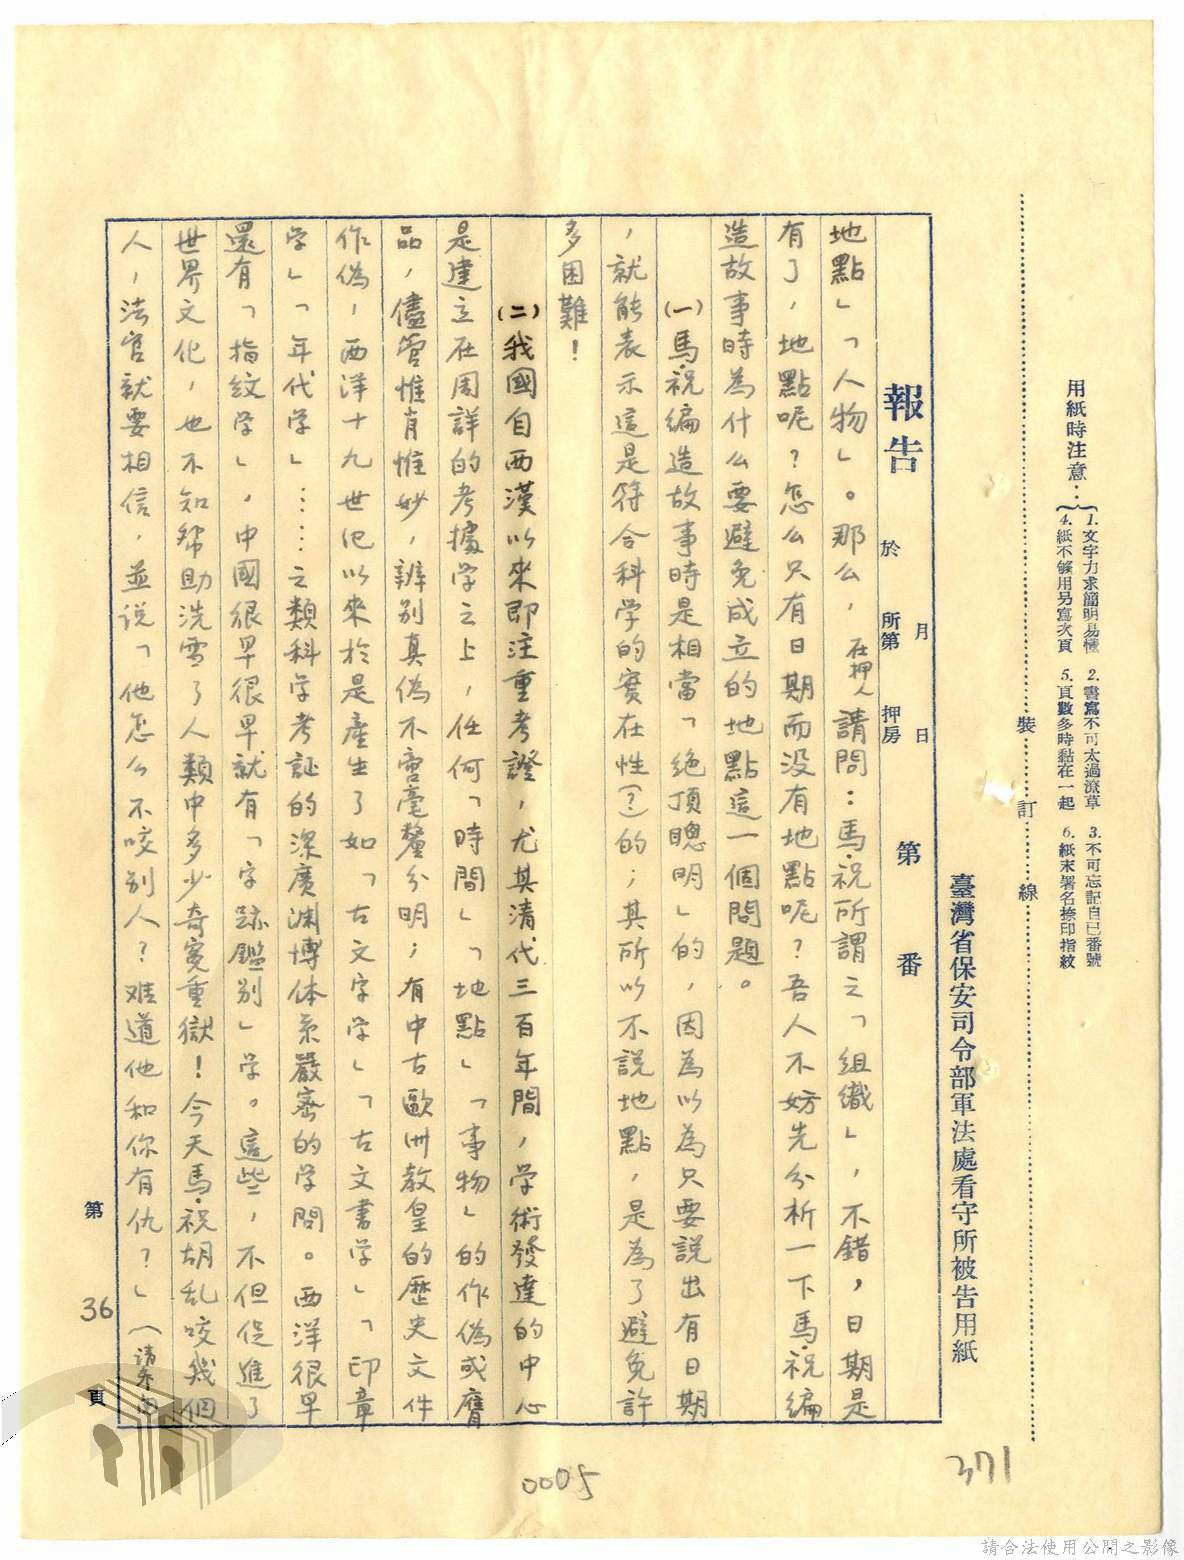 用紙時注意：
1. 文字力求簡明易懂 2. 書寫不可太過潦草 3. 不可忘記自己番號
4. 紙不够用另寫次頁 5. 頁數多時黏在一起 6. 紙末署名捺印指紋
裝訂線
臺灣省保安司令部軍法處看守所被告用紙
報告
月 日
於 所第 押房
第 番
地點」「人物」。那么，在押人請問：馬.祝所謂之「組織」，不錯，日期是
有了，地點呢？怎么只有日期而没有地點呢？吾人不妨先分析一下馬.祝編
造故事時為什么要避免成立的地點這一個問題。
(一)馬.祝編造故事時是相當「絶頂聰明」的，因為以為只要說出有日期
，就能表示這是符合科学的實在性(?)的；其所以不說地點，是為了避免許
多困難！
(二)我國自西漢以來即注重考證，尤其清代三百年間，学術發達的中心
是建立在周詳的考據学之上，任何「時間」「地點」「事物」的作偽或膺
品，儘管惟肖惟妙，辨别真偽不啻毫釐分明；有中古歐洲教皇的歷史文件
作偽，西洋十九世纪以來於是產生了如「古文字学」「古文書学」「印章
学」「年代学」……之類科学考証的深廣渊博体系嚴密的学問。西洋很早
還有「指紋学」，中國很早很早就有「字跡鑑别」学。這些，不但促進了
世界文化，也不知帮助洗雪了人類中多少奇寃重獄！今天馬.祝胡乱咬幾個
人，法官就要相信，並说「他怎么不咬别人？难道他和你有仇？」（請参閲
第 36 頁
0005
371
請合法使用公開之影像